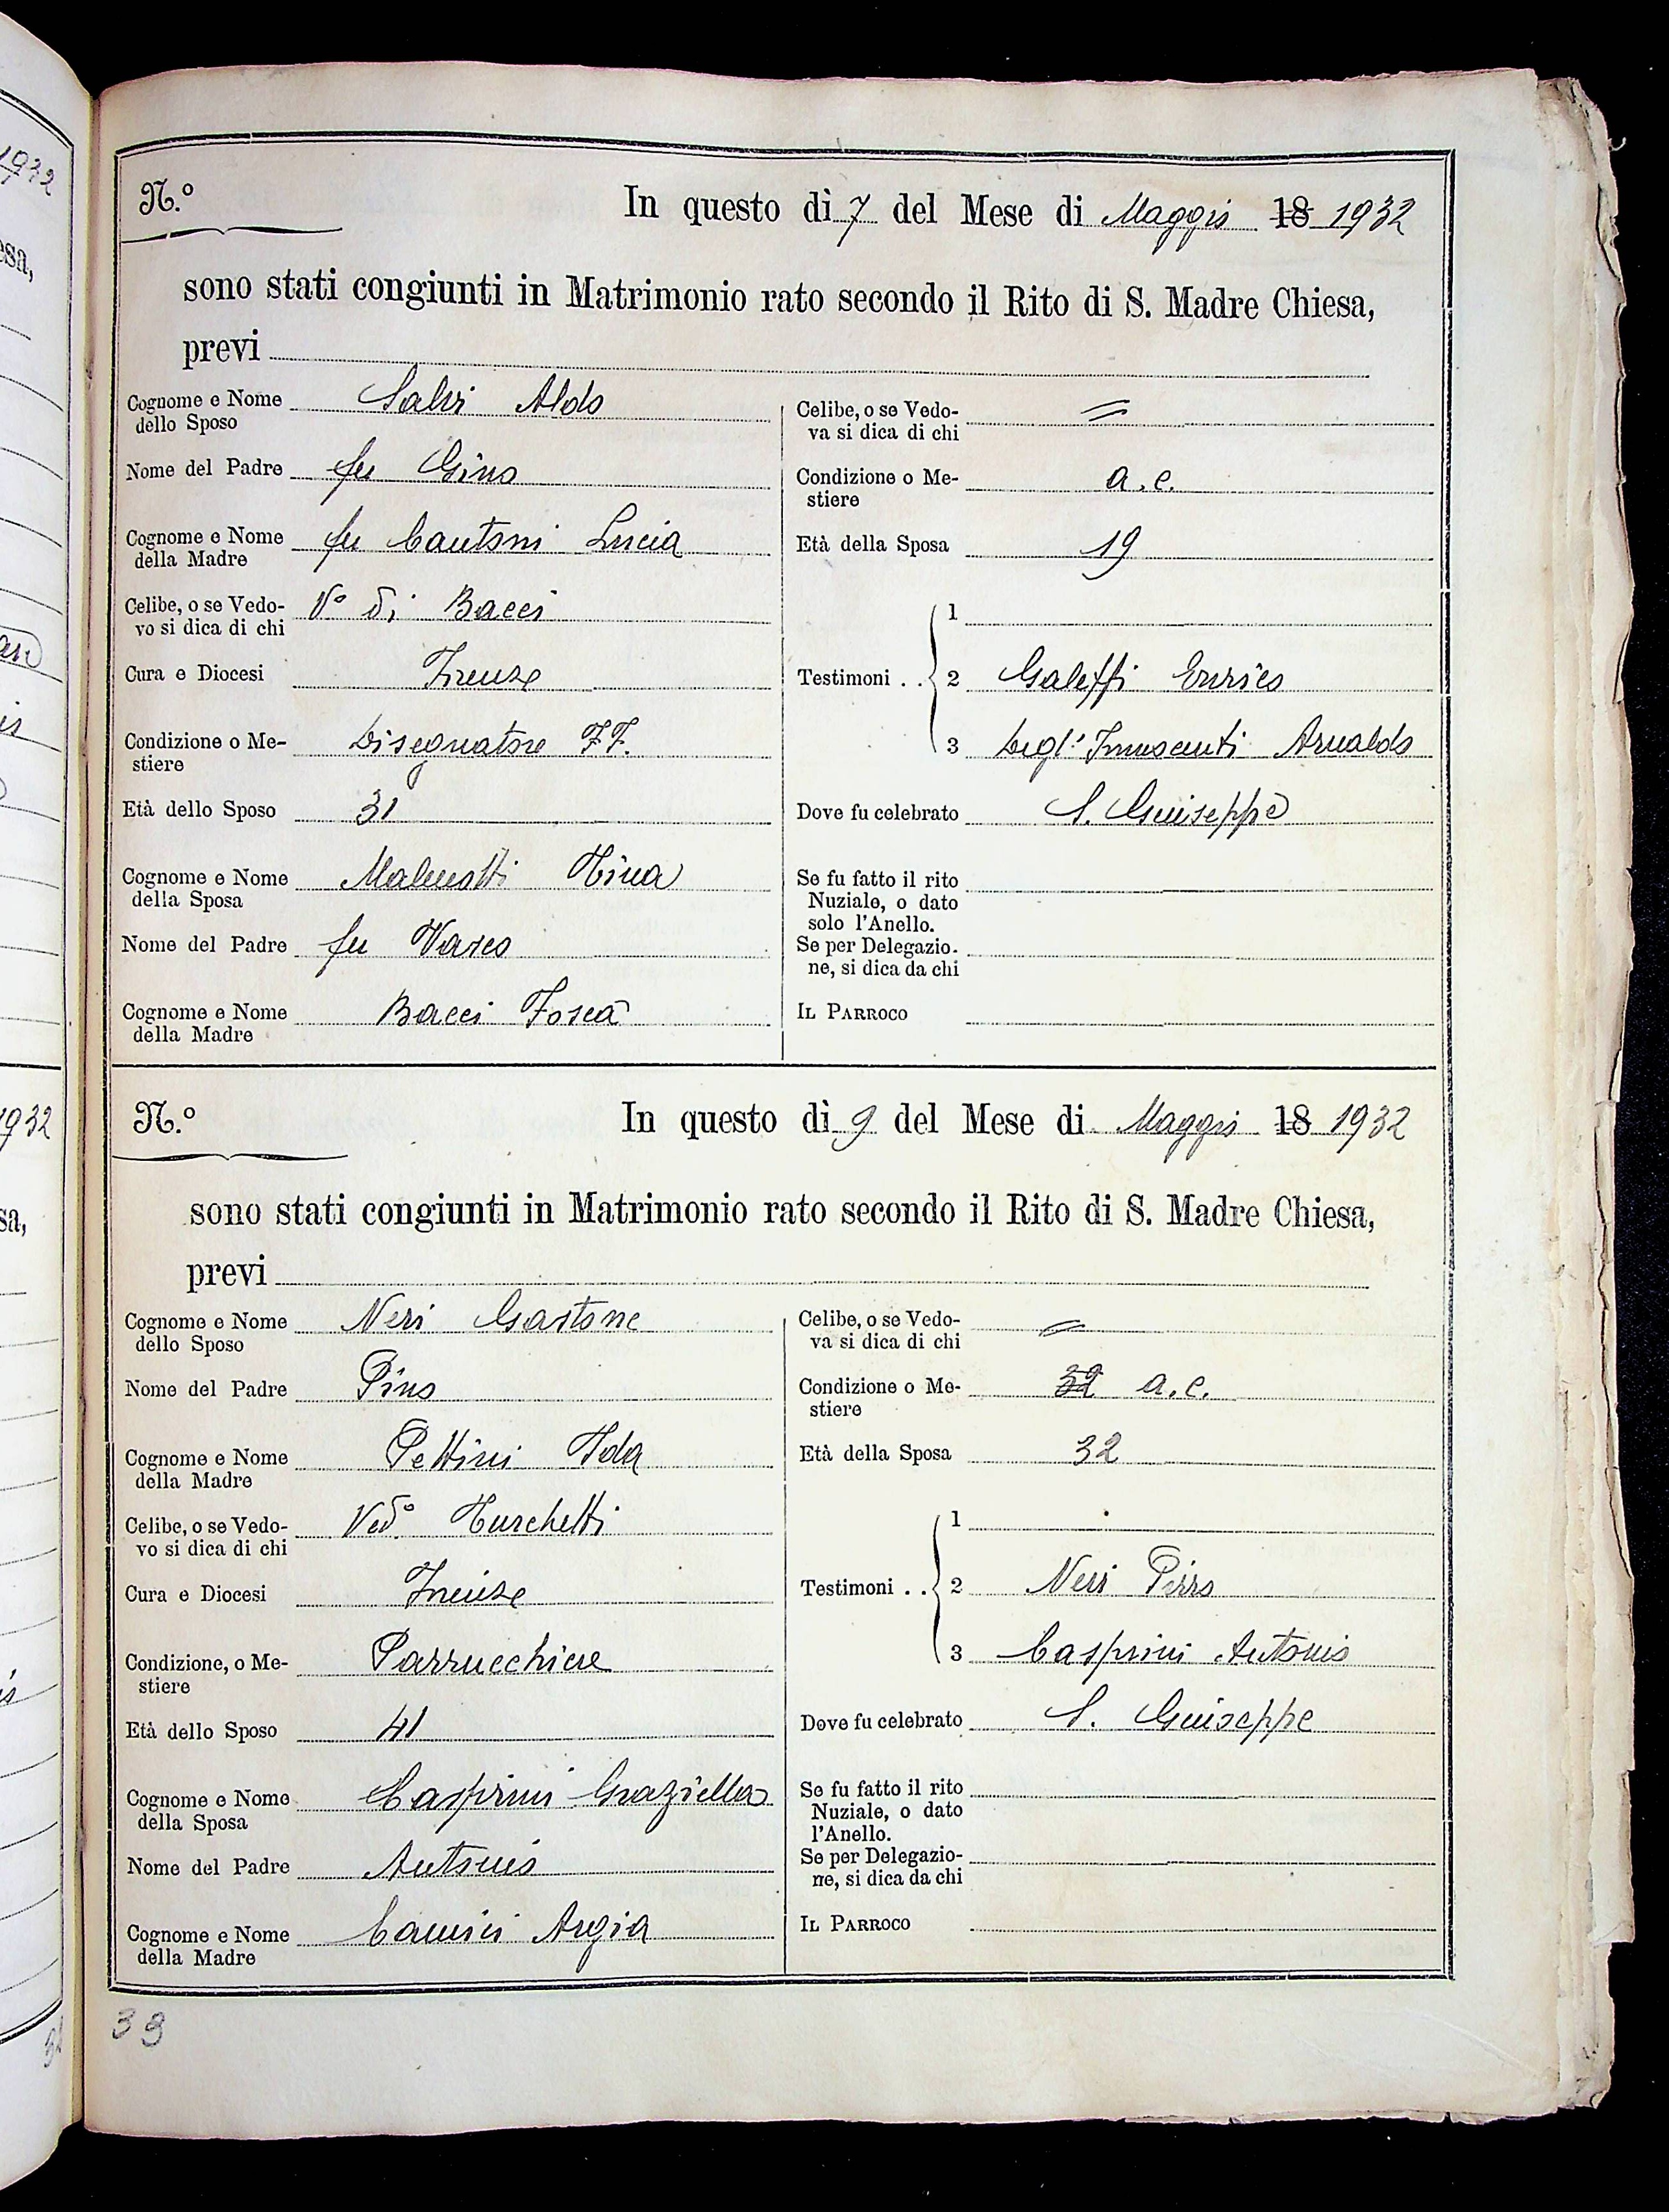 N.º In questo dì 7 del Mese di Maggio 18 1932
sono stati congiunti in Matrimonio rato secondo il Rito di S. Madre Chiesa,
previ
Cognome e Nome
dello Sposo Salvi Aldo
Nome del Padre fu Gino
Cognome e Nome
della Madre fu Cantoni Lucia
Celibe, o se Vedo-
vo si dica di chi Vº di Bacci
Cura e Diocesi Firenze
Condizione o Me-
stiere Disegnatore FF.
Età dello Sposo 31
Cognome e Nome
della Sposa Malenotti Tina
Nome del Padre fu Vasco
Cognome e Nome
della Madre Bacci Fosca
Celibe, o se Vedo-
va si dica di chi =
Condizione o Me-
stiere a.c.
Età della Sposa 19
Testimoni . . 1
2 Galeffi Enrico
3 Degl' Innocenti Arnaldo
Dove fu celebrato S. Giuseppe
Se fu fatto il rito
Nuziale, o dato
solo l'Anello.
Se per Delegazio-
ne, si dica da chi
IL PARROCO
N.º In questo dì 9 del Mese di Maggio 18 1932
sono stati congiunti in Matrimonio rato secondo il Rito di S. Madre Chiesa,
previ
Cognome e Nome
dello Sposo Neri Gastone
Nome del Padre Pirro
Cognome e Nome
della Madre Pettini Ida
Celibe, o se Vedo-
vo si dica di chi Vedº Turchetti
Cura e Diocesi Firenze
Condizione, o Me-
stiere Parrucchiere
Età dello Sposo 41
Cognome e Nome
della Sposa Casprini Graziella
Nome del Padre Antonio
Cognome e Nome
della Madre Camici Argia
Celibe, o se Vedo-
va si dica di chi =
Condizione o Me-
stiere 32 a.c.
Età della Sposa 32
Testimoni . . 1
2 Neri Pirro
3 Casprini Antonio
Dove fu celebrato S. Giuseppe
Se fu fatto il rito
Nuziale, o dato
l'Anello.
Se per Delegazio-
ne, si dica da chi
IL PARROCO
33